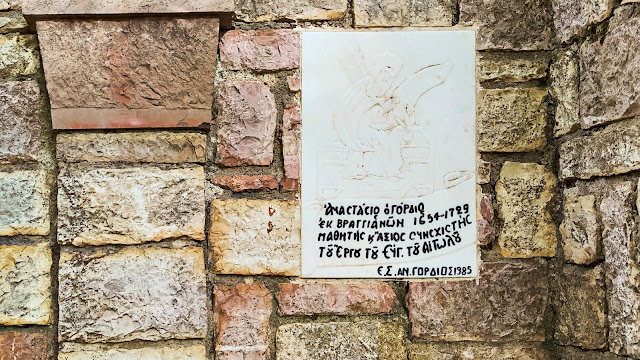 ἈΝΑΣΤΑΣΙΟ Ὁ ΓΟΡΔΙΟ
ἘΚ ΒΡΑΓΓΙΑΝΩΝ 1654-1729
ΜΑΘΗΤΗΣ Κ ἌΞΙΟΣ ΣΥΝΕΧΙΣΤΗΣ
ΤΟΥ ΕΡΓΟΥ ΤΟΥ ΕΥΓ. ΤΟΥ ΑΙΤΩΛΟΥ
Ε.Σ. ΑΝ. ΓΟΡΔΙΟΣ 1985